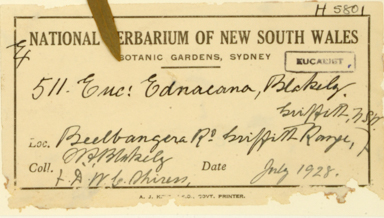 H 5801
NATIONAL HERBARIUM OF NEW SOUTH WALES
BOTANIC GARDENS, SYDNEY
EUCALYPT
511. Euc: Ednaeana, Blakely.
Griffith, NSW
Loc. Beelbangera Rd Griffith Range,
Coll. W.F. Blakely Date July 1928.
& D. W. C. Shiress
GOVT. PRINTER.